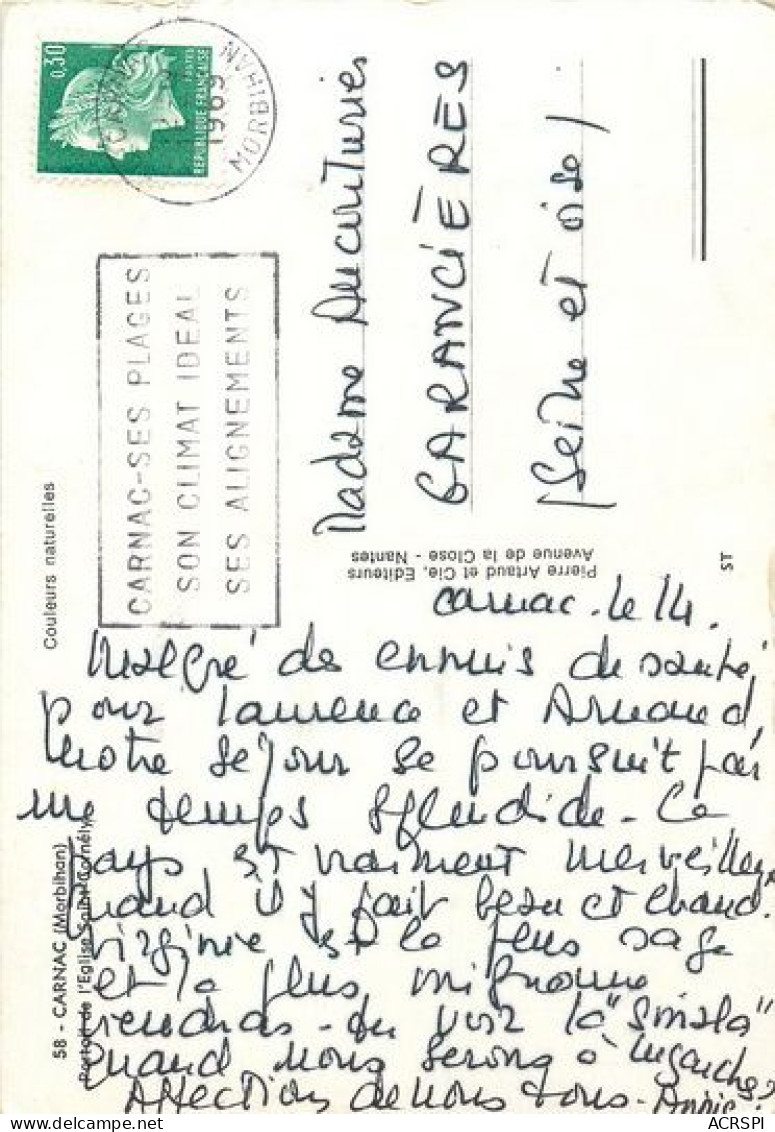 0,30
POSTES
REPUBLIQUE FRANÇAISE
CARNAC
1969
MORBIHAN
CARNAC-SES PLAGES
SON CLIMAT IDEAL
SES ALIGNEMENTS
Couleurs naturelles
Madame Aucouturier
GARANCIÈRES
(Seine et oise)
Pierre Artaud et Cie, Editeurs
Avenue de la Close - Nantes
ST
58 - CARNAC (Morbihan)
Portail de l'Eglise Saint Cornély
Carnac. le 14.
Malgré des ennuis de santé,
pour Laurence et Armand,
notre séjour se poursuit par
un temps splendide. Ce
pays est vraiment merveilleux
quand il y fait beau et chaud.
Virginie est la plus sage
et la plus mignonne
viendras-tu voir la "Smala"
quand nous serons à
Affection de nous tous - Annie
ACRSPI